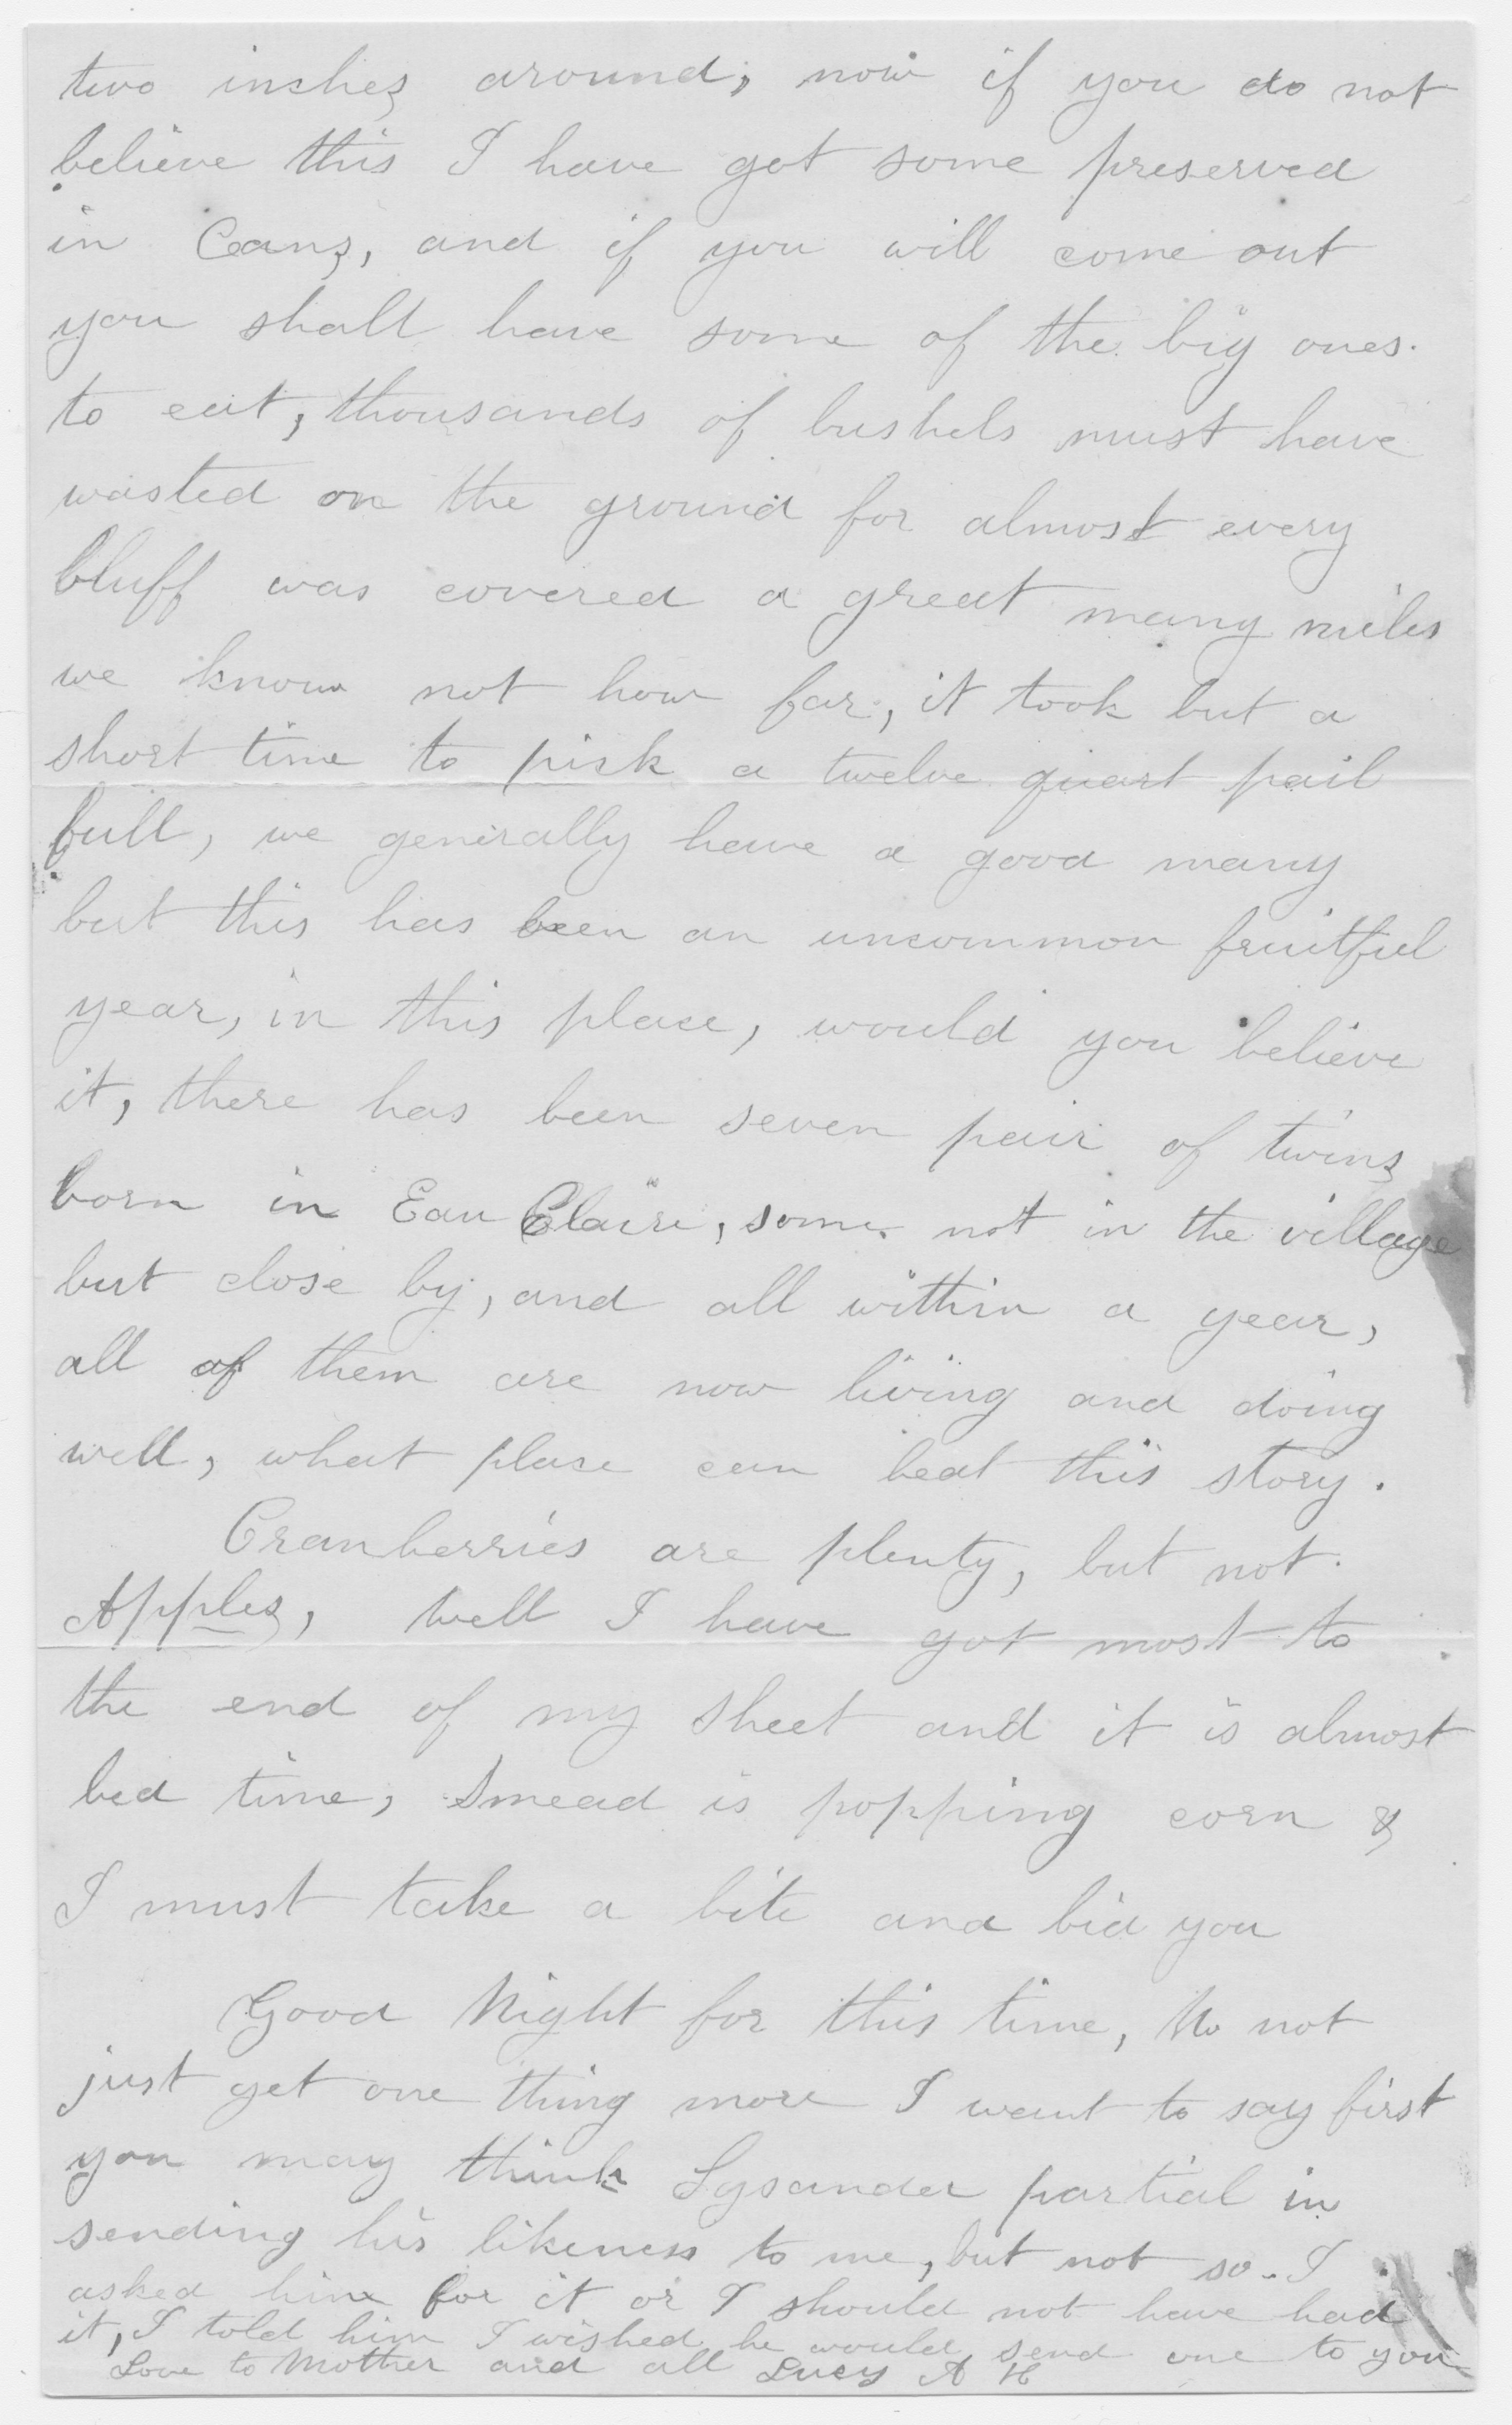 two inches around, now if you do not
believe this I have got some preserved
in Cans, and if you will come out
you shall have some of the big ones.
to eat, thousands of bushels must have
wasted on the ground for almost every
bluff was covered a great many miles
we know not how far, it took but a
short time to pick a twelve quart pail
full, we generally have a good many
but this has been an uncommon fruitful
year, in this place, would you believe
it, there has been seven pair of twins
born in Eau Claire, some not in the village
but close by, and all within a year,
all of them are now living and doing
well, what place can beat this story.
Cranberries are plenty, but not.
Apples, Well I have got most to
the end of my sheet and it is almost
bed time, Smead is popping corn &
I must take a bite and bid you
Good Night for this time, No not
just yet one thing more I want to say first
you may think Lysander partial in
sending his likeness to me, but not so. I
asked him for it or I should not have had
it, I told him I wished he would send one to you
Love to Mother and all Lucy A H